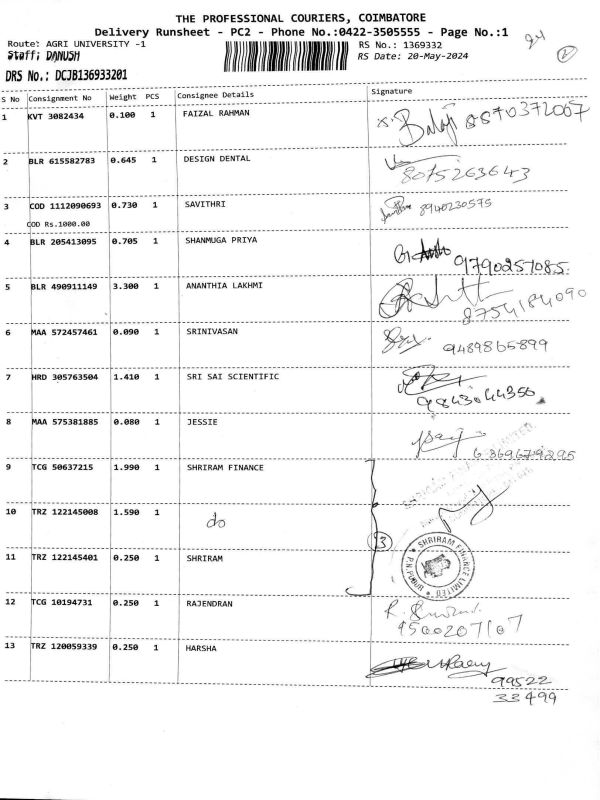 THE PROFESSIONAL COURIERS, COIMBATORE
Delivery Runsheet - PC2 - Phone No.:0422-3505555 - Page No.:1
Route: AGRI UNIVERSITY -1
RS No.: 1369332
Staff: DANUSH
RS Date: 20-May-2024
DRS No.: DCJB136933201
24
2
S No Consignment No Weight PCS Consignee Details Signature
1 KVT 3082434 0.100 1 FAIZAL RAHMAN Balaji 8870372007
2 BLR 615582783 0.645 1 DESIGN DENTAL
8075263643
3 COD 1112090693 0.730 1 SAVITHRI 8940230575
COD Rs.1000.00
4 BLR 205413095 0.705 1 SHANMUGA PRIYA
9790257085
5 BLR 490911149 3.300 1 ANANTHIA LAKHMI
8754184090
6 MAA 572457461 0.090 1 SRINIVASAN
9489865899
7 HRD 305763504 1.410 1 SRI SAI SCIENTIFIC
9843044350
8 MAA 575381885 0.080 1 JESSIE
869679295
9 TCG 50637215 1.990 1 SHRIRAM FINANCE
SHRIRAM FINANCE LIMITED
10 TRZ 122145008 1.590 1 do
3
11 TRZ 122145401 0.250 1 SHRIRAM
SHRIRAM FINANCE LIMITED
12 TCG 10194731 0.250 1 RAJENDRAN
9500207107
13 TRZ 120059339 0.250 1 HARSHA
99522
33499